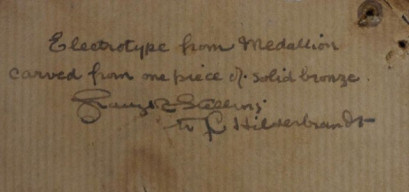 Electrotype from Medallion
carved from one piece of solid bronze.
to L Hilderbrandt